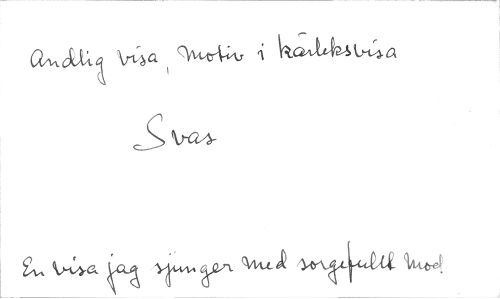 Andlig visa, Motiv i kärleksvisa
Svas
En visa jag sjunger med sorgefullt mod